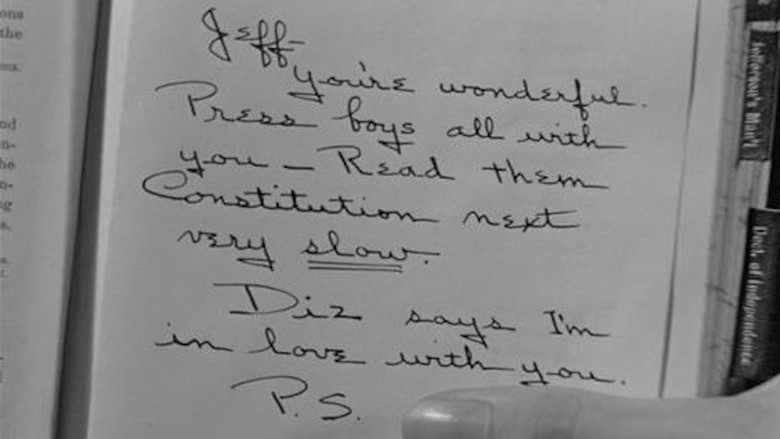 ons
the
Jeff—
you're wonderful.
Press boys all with
you — Read them
Constitution next
very slow.
Diz says I'm
in love with you.
P.S.
nd
he
Jefferson's Man'l
Decl. of Independence